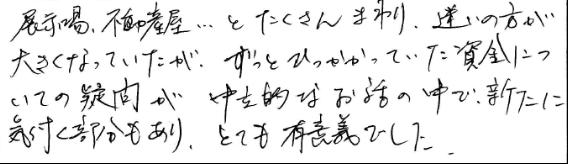 展示場、不動産屋…とたくさんまわり、迷いの方が
大きくなっていたが、ずっとひっかかっていた資金につ
いての疑問が中立的なお話の中で、新たに
気付く部分もあり、とても有意義でした